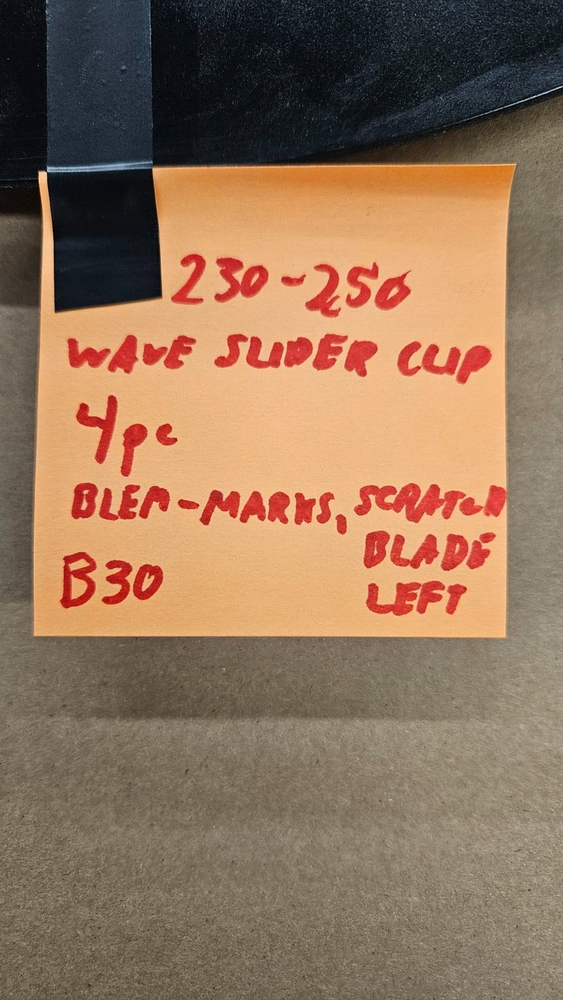 230-250
WAVE SLIDER CLIP
4pc
BLEM-MARKS, SCRATCH
BLADE
B30
LEFT